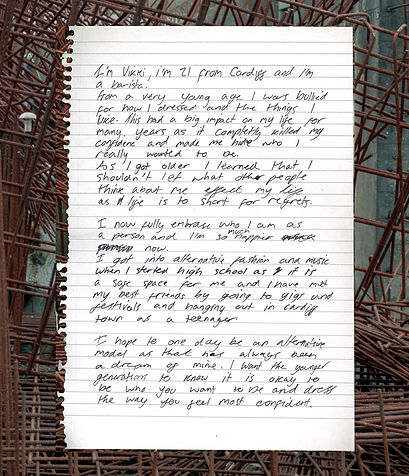 I'm Vikki, I'm 21 from Cardiff and I'm
a barista.
From a very young age I was bullied
for how I dressed and the things I
like. This had a big impact on my life for
many, years as it completly killed my
confidence and made me hide who I
really wanted to be.
As I got older I learned that I
shouldn't let what other people
think about me effect my life
as life is to short for regrets.
I now fully embrace who I am as
a person and I'm so much happier
now.
I got into alternative fashion and music
when I started high school as it is
a safe space for me and I have met
my best friends by going to gigs and
festivals and hanging out in cardiff
town as a teenager
I hope to one day be an alternative
model as that has always been
a dream of mine. I want the younger
generations to know it is okay to
be who you want to be and dress
the way you feel most confident.